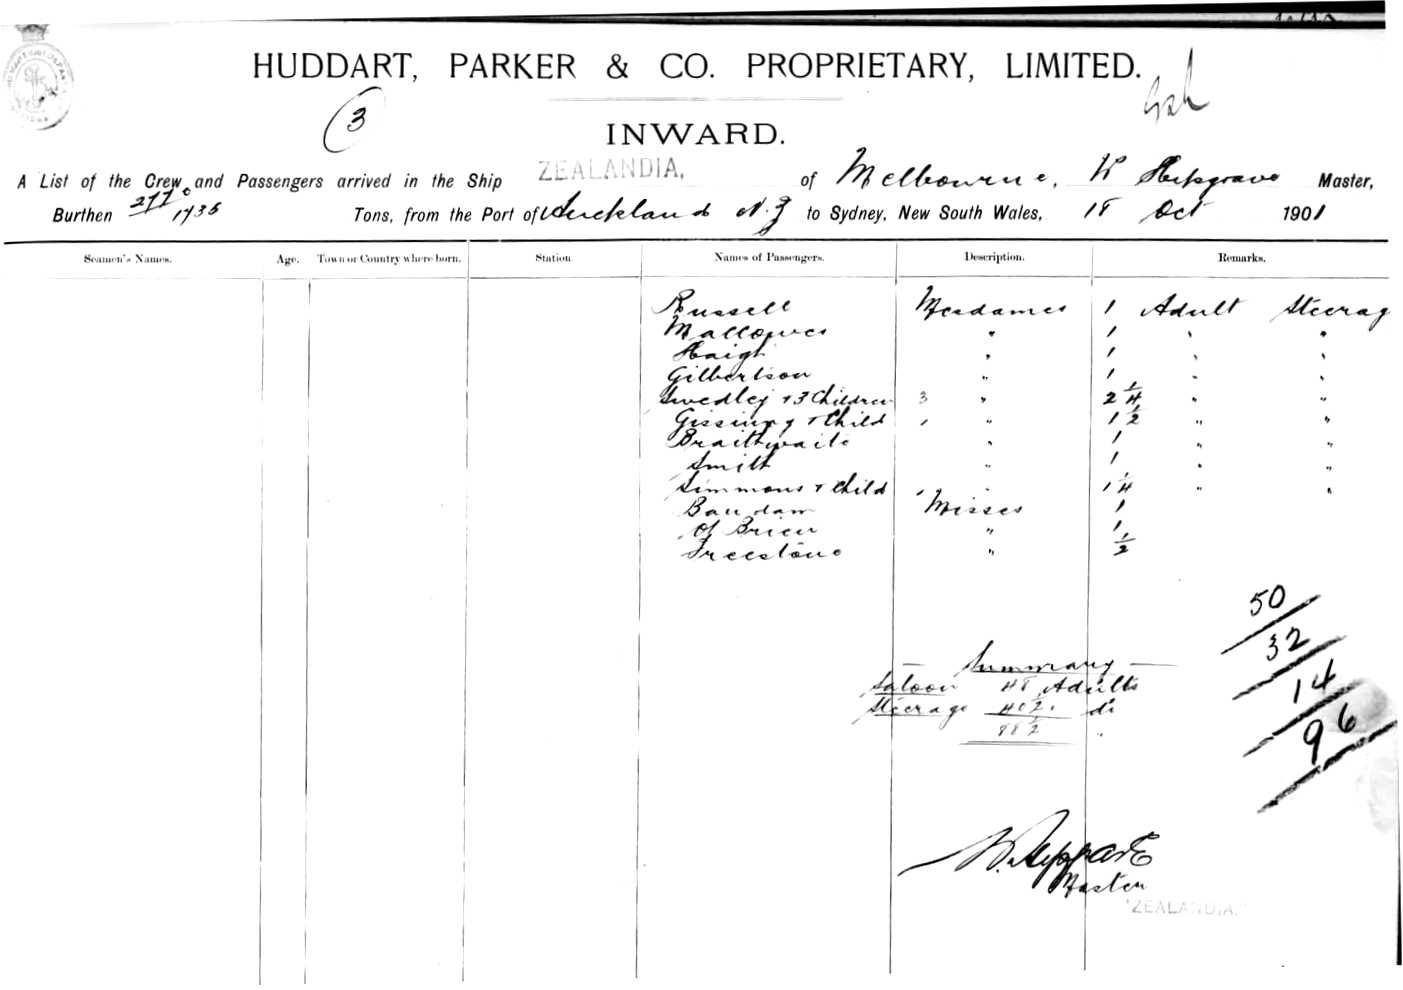 HUDDART, PARKER & CO. PROPRIETARY, LIMITED.
3
INWARD.
A List of the Crew and Passengers arrived in the Ship ZEALANDIA, of Melbourne, Master,
Burthen Tons, from the Port of Auckland N.Z to Sydney, New South Wales, 18 Oct 1901
Seamen's Names. Age. Town or Country where born. Station Names of Passengers. Description. Remarks.
Russell Mesdames 1 Adult Steerag
Mallowes " 1 " "
Haigh " 1 " "
Gilbertson " 1 " "
Swedley + 3 Children 3 " 2 1/4 " "
Gissing + Child 1 " 1 1/2 " "
Braithwaite " 1 " "
Smith " 1 " "
Simmons + Child 1 " 1 1/4 " "
Misses 1
O'Brien " 1
Freestone " 1/2
50
32
14
96
Summary
Saloon 48 Adults
Steerage 40 1/2 do
88 1/2
Master
"ZEALANDIA."